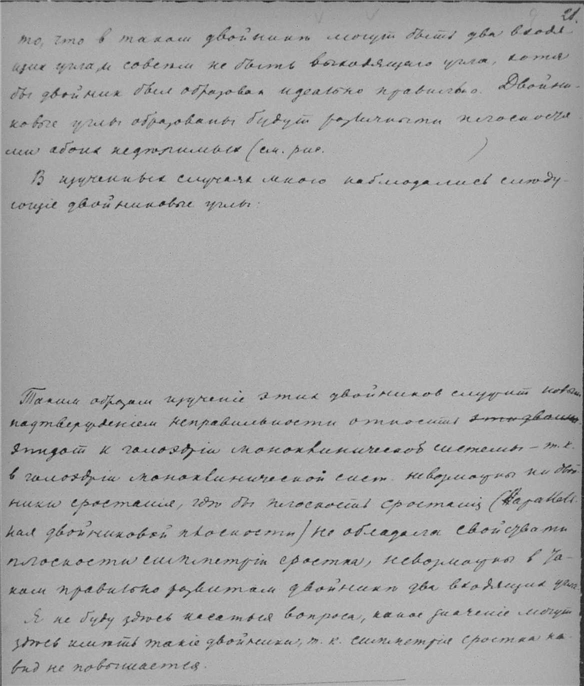 21.
то, что в таком двойникѣ могутъ быть два входя-
щихъ угла и совсѣм не быть выходящаго угла, хотя
бы двойник былъ образован идеально правильно. Двойни-
ковые углы образованы будутъ различными плоскостя-
ми обоих недѣлимыхъ (см. рис. )
В изученныхъ случаях мною наблюдались слѣду-
ющіе двойниковые углы:
Таким образом изученіе этих двойников служит новым
подтвержденіем неправильности относить
эпидот к голоэдріи моноклинической системы – т. к.
в голоэдріи моноклинической сист. невозможны ни двой-
ники сростанія, гдѣ бы плоскость сростанія (параллель-
ная двойниковой плоскости) не обладала свойствами
плоскости симметріи сростка, невозможны в та-
ком правильно развитом двойникѣ два входящих угла.
Я не буду здѣсь касаться вопроса, какое значеніе могутъ
здѣсь имѣть такіе двойники, т. к. симметрія сростка на-
вид не повышается.